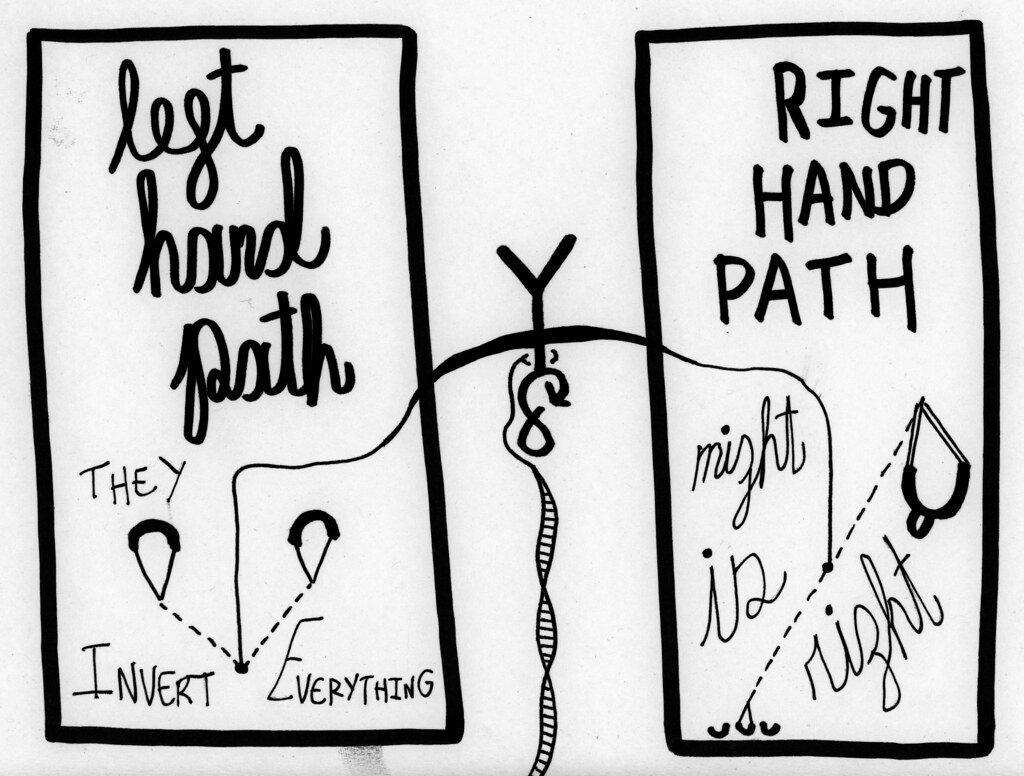 left
hand
path
THEY
INVERT EVERYTHING
RIGHT
HAND
PATH
might
is
right